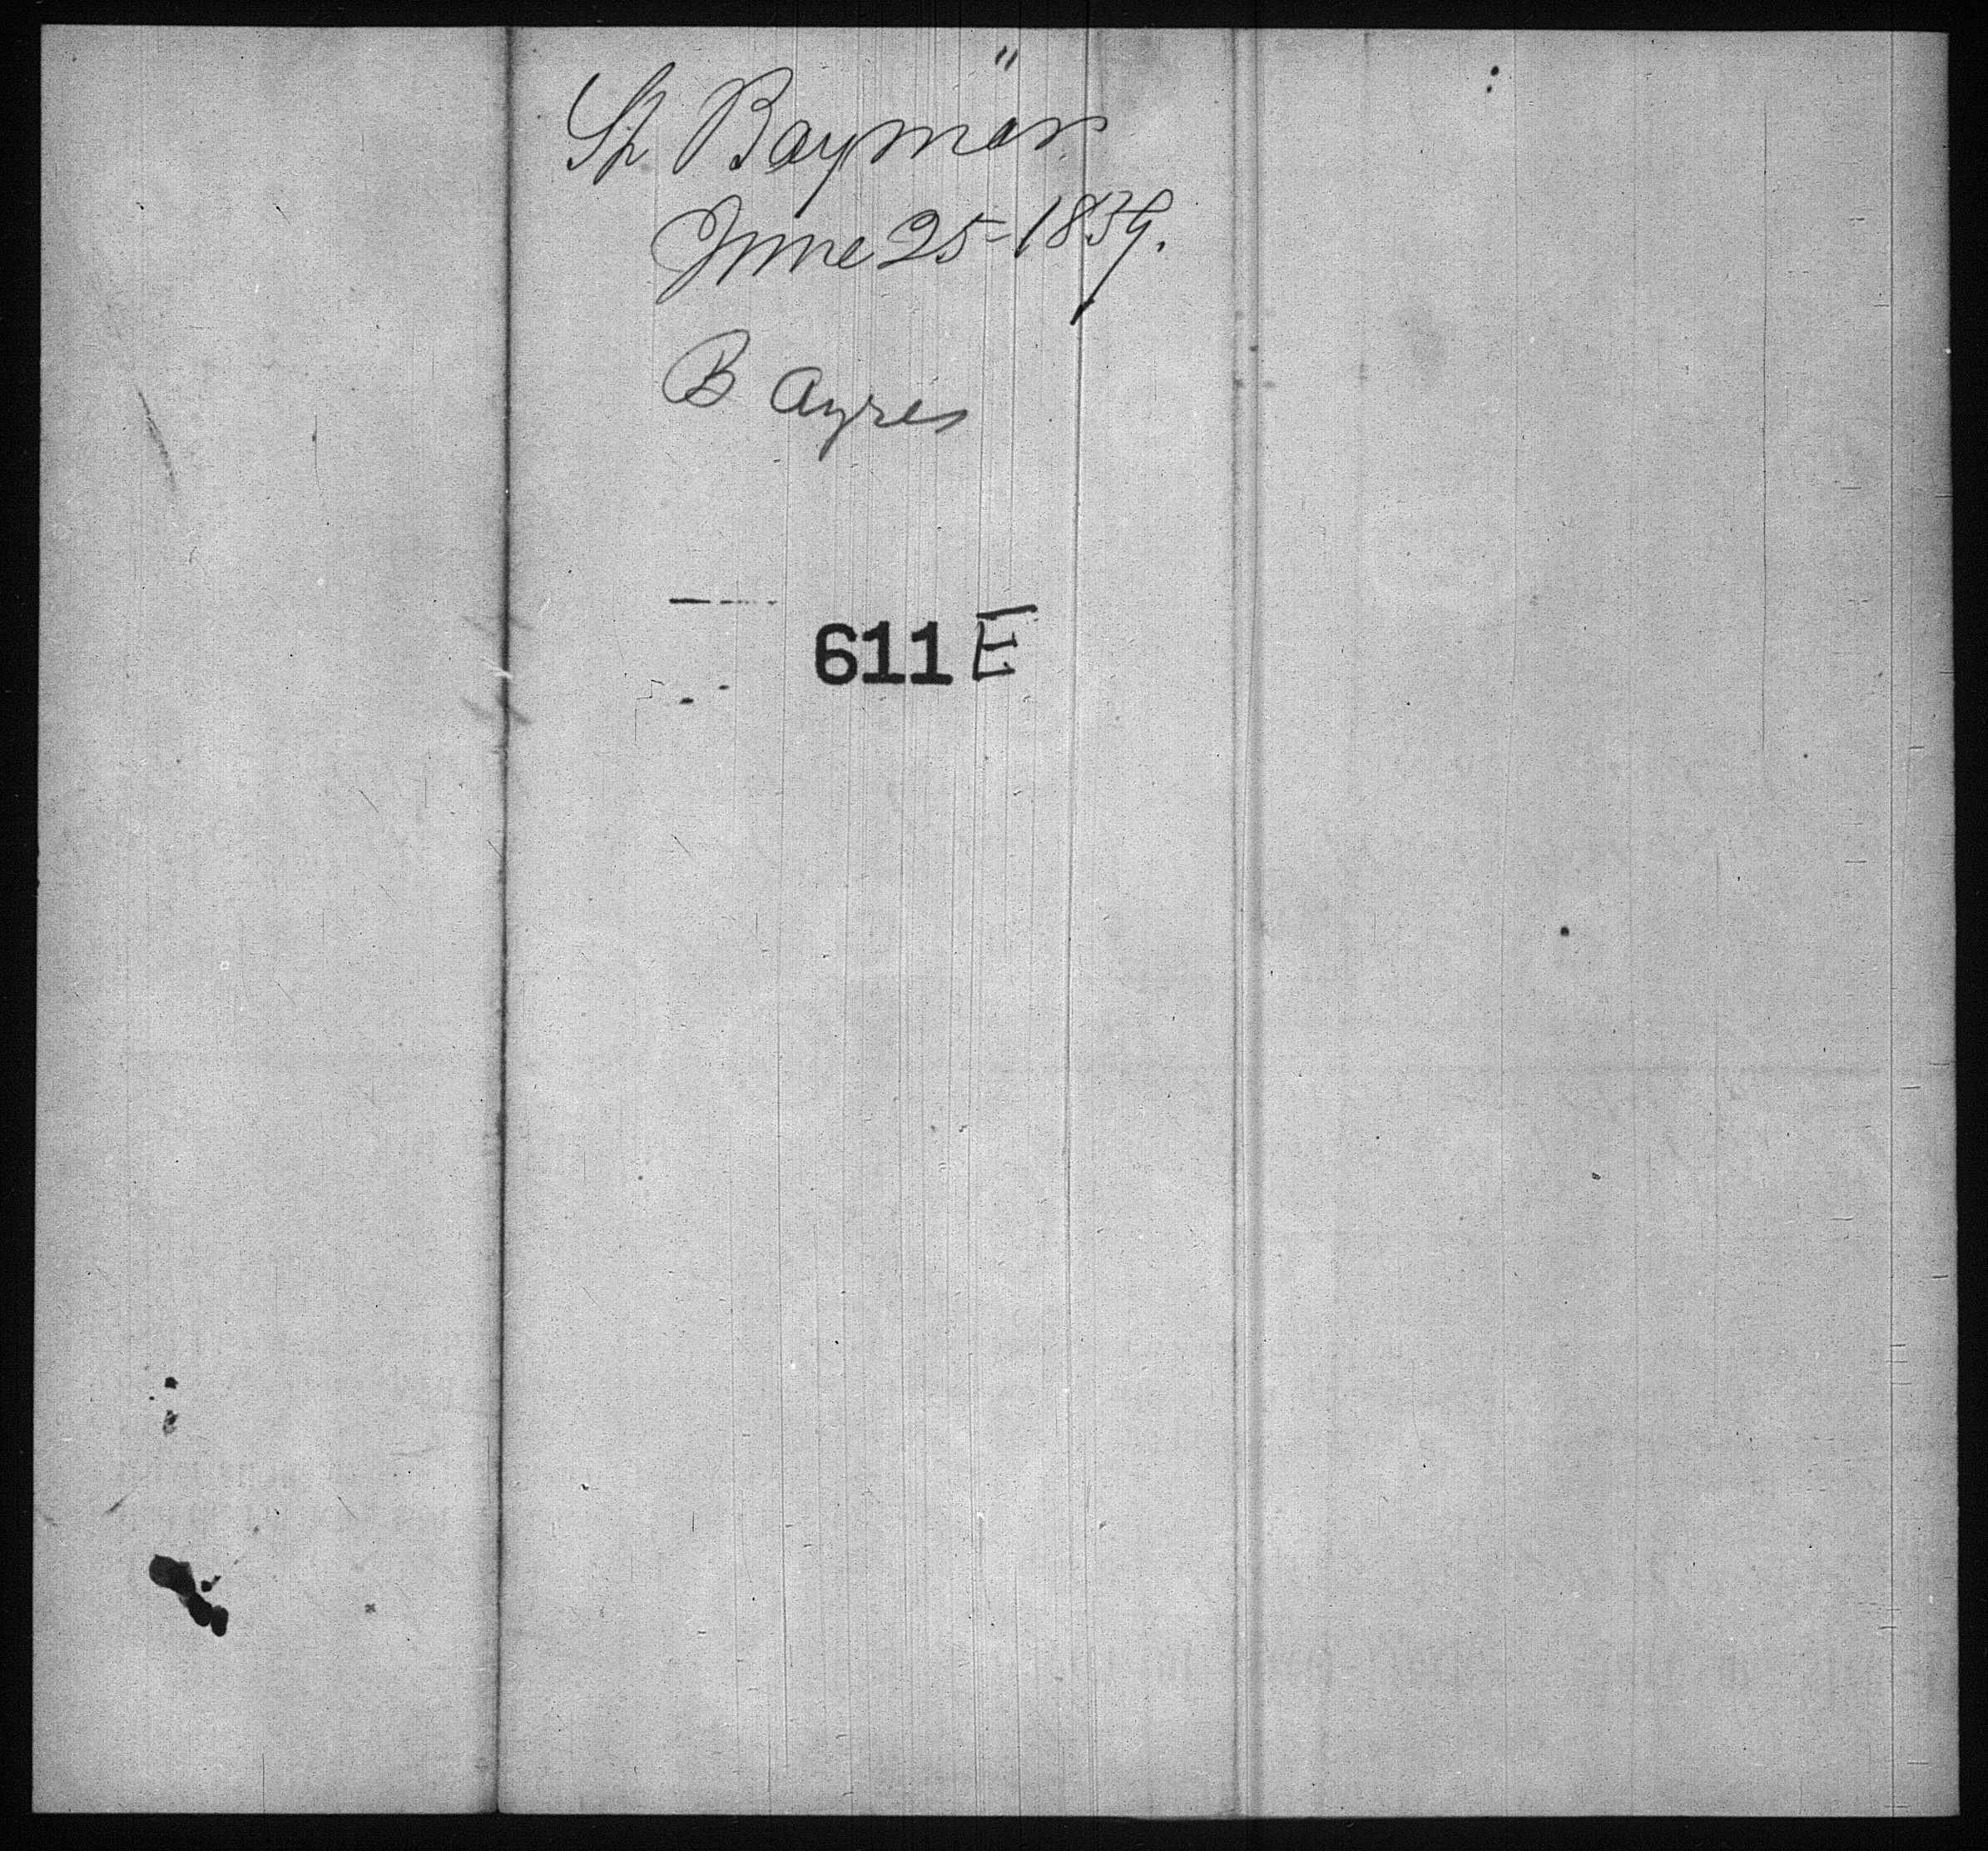 Sp Bayman
June 25-1839.
B Ayres
611 E